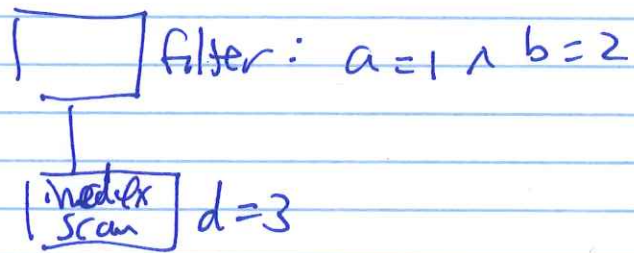 filter: a=1 ∧ b=2
index
scan d=3